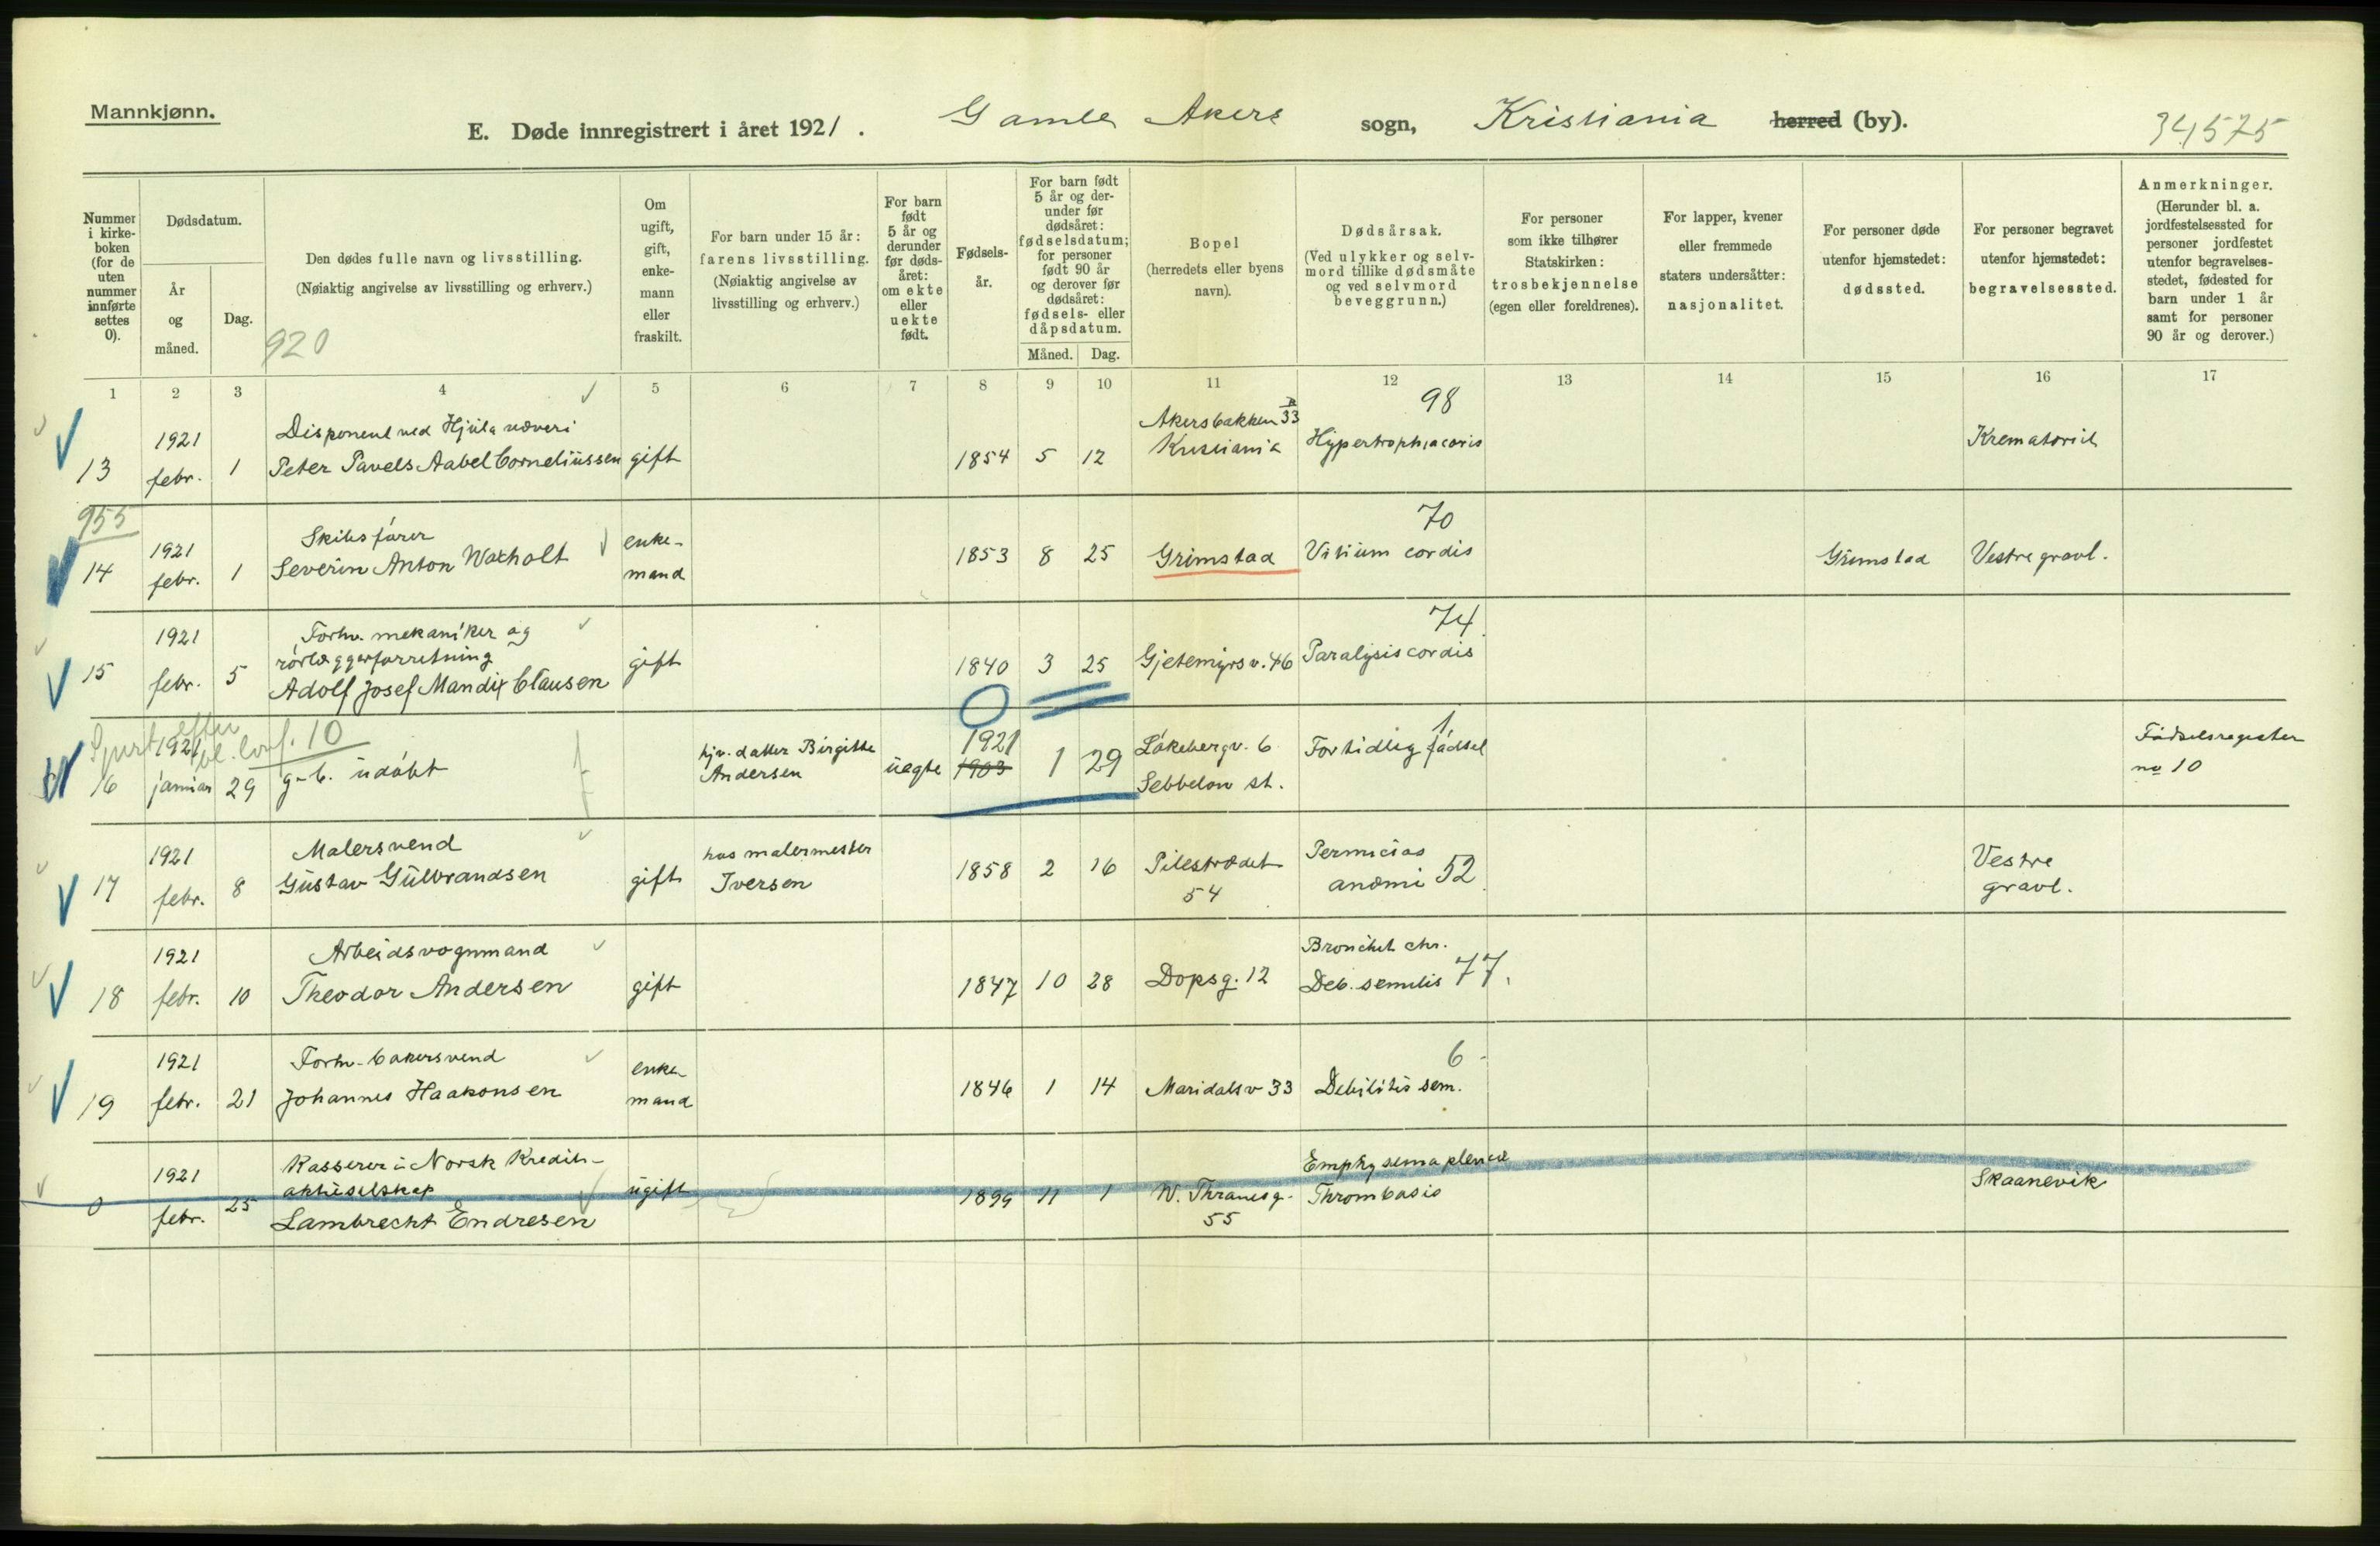 Mannkjønn.
E. Døde innregistrert i året 1921.
Gamle Akers sogn, Kristiania herred (by).
34575
Nummer i kirkeboken (for de uten nummer innførte settes 0).
Dødsdatum.
År og måned.
Dag.
Den dødes fulle navn og livsstilling.
(Nøiaktig angivelse av livsstilling og erhverv.)
920
Om ugift, gift, enkemann eller fraskilt.
For barn under 15 år: farens livsstilling.
(Nøiaktig angivelse av livsstilling og erhverv.)
For barn født 5 år og derunder før dødsåret: om ekte eller uekte født.
Fødselsår.
For barn født 5 år og derunder før dødsåret: fødselsdatum; for personer født 90 år og derover før dødsåret: fødsels- eller dåpsdatum.
Måned. Dag.
Bopel
(herredets eller byens navn).
Dødsårsak.
(Ved ulykker og selvmord tillike dødsmåte og ved selvmord beveggrunn.)
For personer som ikke tilhører Statskirken: trosbekjennelse (egen eller foreldrenes).
For lapper, kvener eller fremmede staters undersåtter: nasjonalitet.
For personer døde utenfor hjemstedet: dødssted.
For personer begravet utenfor hjemstedet: begravelsessted.
Anmerkninger.
(Herunder bl. a. jordfestelsessted for personer jordfestet utenfor begravelsesstedet, fødested for barn under 1 år samt for personer 90 år og derover.)
1 2 3 4 5 6 7 8 9 10 11 12 13 14 15 16 17
13 1921 febr. 1 Disponent ved Hjula væveri
Peter Pavels Aabel Corneliussen gift 1854 5 12 Akersbakken 33 Kristiania 98 Hypertrophia cordis Krematoriet
955
14 1921 febr. 1 Skibsfører
Severin Anton Waxholt enkemand 1853 8 25 Grimstad 70 Vitium cordis Grimstad Vestre gravl.
15 1921 febr. 5 Forhv. mekaniker og
rørlæggerforretning
Adolf Josef Mandix Clausen gift 1840 3 25 Gjetemyrsv. 46 74 Paralysis cordis
Spurt efter
16 1921 januar 29 g-b. udøbt hjv. datter Birgitte Andersen uegte 0 1921 1903 1 29 Løkebergv. 6
Sebbelow st. 1 Fortidlig fødsel Fødselsregister no 10
17 1921 febr. 8 Malersvend
Gustav Gulbrandsen gift hos malermester Iversen 1858 2 16 Pilestrædet 54 Perniciøs anæmi 52 Vestre gravl.
18 1921 febr. 10 Arbeidsvognmand
Theodor Andersen gift 1847 10 28 Dopsg. 12 Bronchit chr.
Deb. senilis 77
19 1921 febr. 21 Forhv. bakersvend
Johannes Haakonsen enkemand 1846 1 14 Maridalsv 33 6 Debilitis sen.
0 1921 febr. 25 Kasserer i Norsk Kredit-
aktieselskap
Lambrecht Endresen ugift 1899 11 1 W. Thranesg. 55 Emphysema
Thrombosis Skaanevik